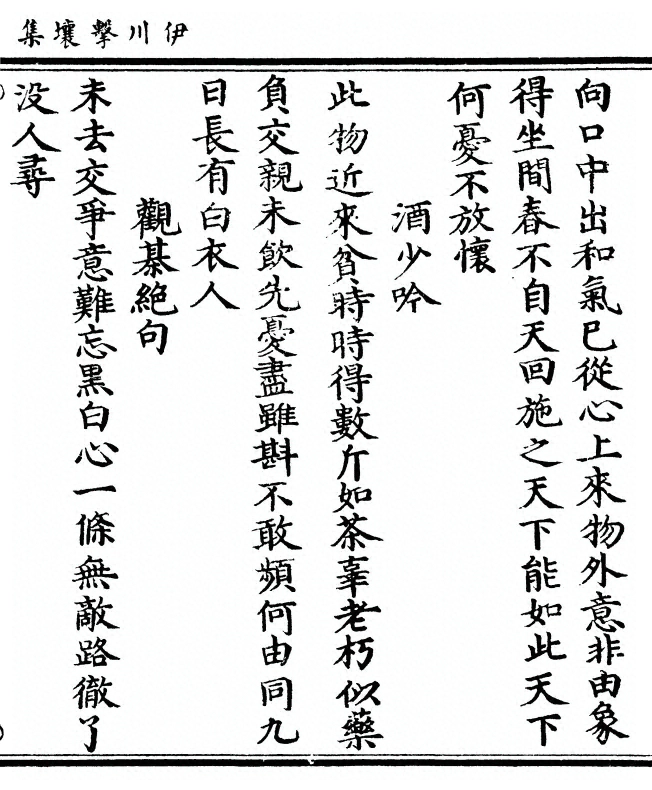 伊川擊壤集
向口中出和氣已從心上來物外意非由象
得坐間春不自天回施之天下能如此天下
何憂不放懷
酒少吟
此物近來貧時時得數斤如茶辜老朽似藥
負交親未飲先憂盡雖斟不敢頻何由同九
日長有白衣人
觀棊絶句
未去交爭意難忘黑白心一條無敵路徹了
没人尋